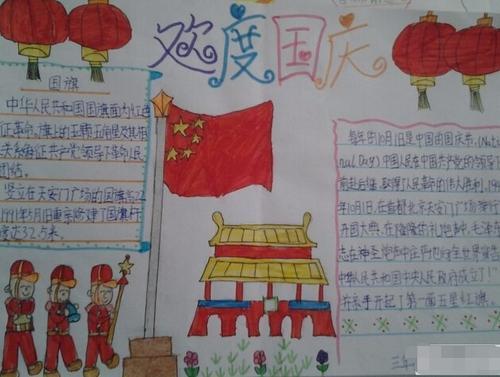 欢度国庆
国旗
中华人民共和国国旗面为红色
征革命,旗上的五颗五角星及其相
关系象征共产党领导下革命人民
团结。
竖立在天安门广场的国旗
1991年5月1日重京修建了国旗杆
度达32.5米。
每年的10月1日是中国的国庆节。(Nati
nal Day)中国人民在中国共产党的领导
前赴后继,取得了人民革命的伟大胜利,19
年10月1日,在首都北京天安门广场举行
开国大典,在隆隆的礼炮声中,毛泽
志在神圣 中庄严地向全世界宣告
中华人民共和国中央人民政府成立了!
并亲手升起了第一面五星红旗
三年